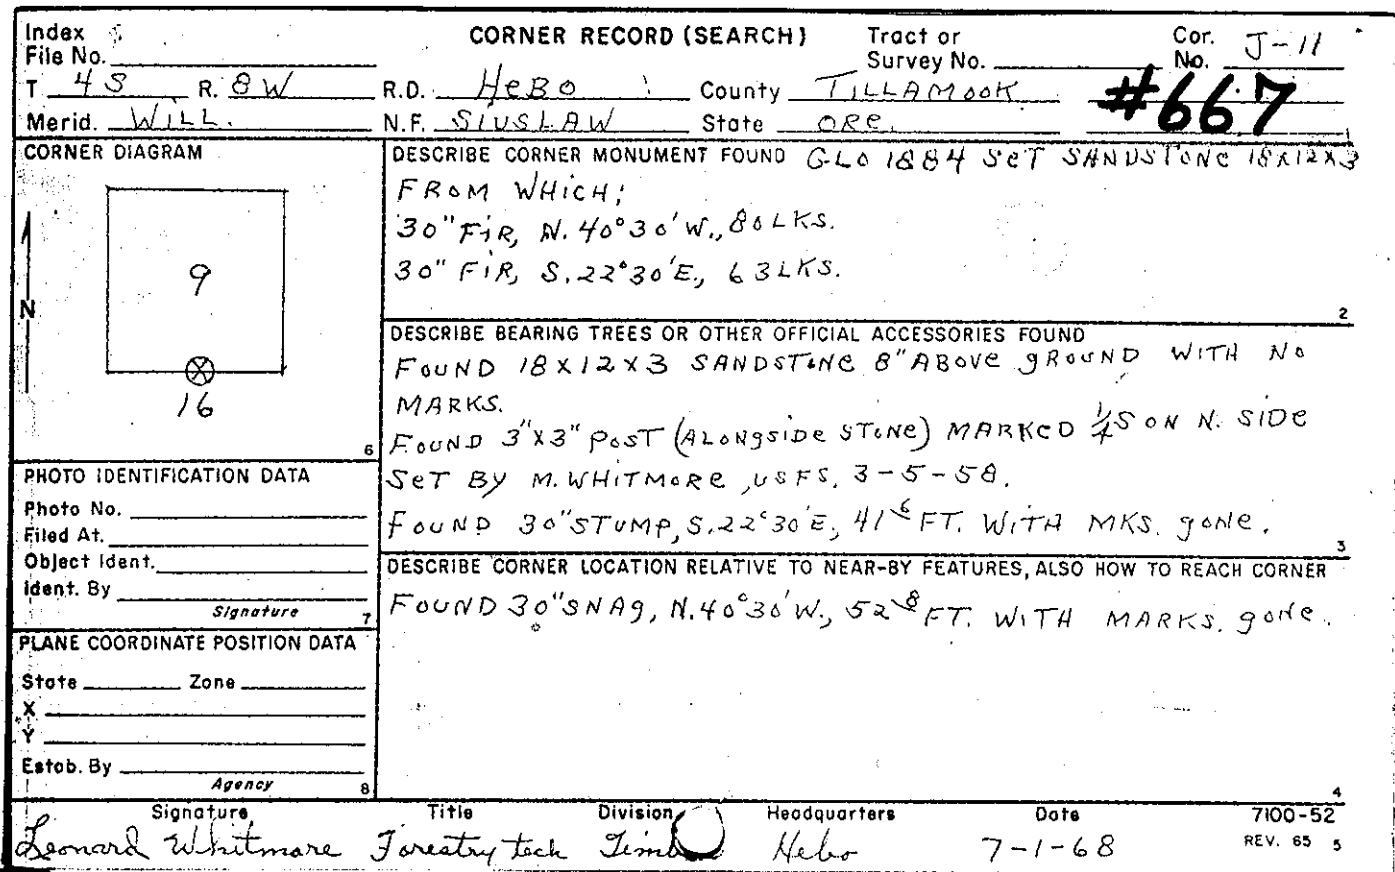 Index CORNER RECORD (SEARCH) Tract or Cor. J-11
File No. Survey No. No.
T 4 S R. 8 W R.D. HEBO County TILLAMOOK #667
Merid. WILL. N.F. SIUSLAW State ORE.
CORNER DIAGRAM
N
9
16
6
DESCRIBE CORNER MONUMENT FOUND GLO 1884 SET SANDSTONE 18X12X3
FROM WHICH;
30" FIR, N. 40°30'W., 80 LKS.
30" FIR, S. 22°30'E., 63 LKS.
2
DESCRIBE BEARING TREES OR OTHER OFFICIAL ACCESSORIES FOUND
FOUND 18X12X3 SANDSTONE 8" ABOVE gROUND WITH NO
MARKS.
FOUND 3"X3" POST (ALONgSIDE STONE) MARKED 1/4 S ON N. SIDE
SET BY M. WHITMORE, USFS, 3-5-58.
FOUND 30" STUMP, S. 22°30'E, 41 6 FT. WITH MKS. gONE.
3
PHOTO IDENTIFICATION DATA
Photo No.
Filed At.
Object Ident.
Ident. By
Signature
7
DESCRIBE CORNER LOCATION RELATIVE TO NEAR-BY FEATURES, ALSO HOW TO REACH CORNER
FOUND 30" SNAg, N. 40°30'W., 52 8 FT. WITH MARKS. gONE.
4
PLANE COORDINATE POSITION DATA
State Zone
X
Y
Estab. By
Agency
8
Signature Title Division Headquarters Date 7100-52
Leonard Whitmore Forestry tech Hebo 7-1-68 REV. 65 5